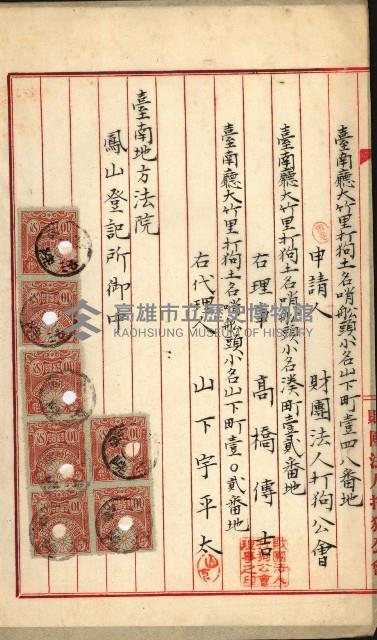 臺南廳大竹里打狗土名哨船頭小名山下町壹四八番地
申請人 財團法人打狗公會
臺南廳大竹里打狗土名哨船頭小名湊町壹貳番地
右理事 高橋傳吉
臺南廳大竹里打狗土名哨船頭小名山下町壹〇貳番地
右代理人 山下宇平太
臺南地方法院
鳳山登記所御中
財團法人
打狗公會
理事之印
高雄市立歷史博物館
KAOHSIUNG MUSEUM OF HISTORY